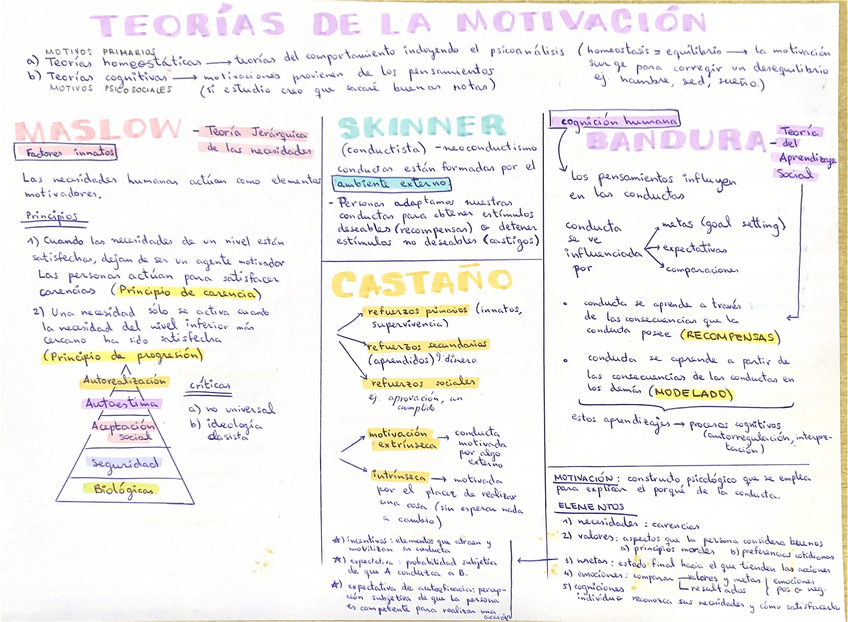 TEORÍAS DE LA MOTIVACIÓN
MOTIVOS PRIMARIOS
a) Teorías homeostáticas → teorías del comportamiento incluyendo el psicoanálisis (homeostasis = equilibrio → la motivación
surge para corregir un desequilibrio
ej. hambre, sed, sueño.)
b) Teorías cognitivas → motivaciones provienen de los pensamientos
MOTIVOS PSICOSOCIALES (si estudio creo que sacaré buenas notas)
MASLOW - Teoría Jerárquica
de las necesidades
Factores innatos
Las necesidades humanas actúan como elementos
motivadores.
Principios
1) Cuando las necesidades de un nivel están
satisfechas, dejan de ser un agente motivador
Las personas actúan para satisfacer
carencias (Principio de carencia)
2) Una necesidad sólo se activa cuando
la necesidad del nivel inferior más
cercano ha sido satisfecha
(Principio de progresión)
Autorealización
Autoestima
Aceptación
social
Seguridad
Biológicas
críticas
a) no universal
b) ideología
clasista
SKINNER
(conductista) - neoconductismo
conductas están formadas por el
ambiente externo
- Personas adaptamos nuestras
conductas para obtener estímulos
deseables (recompensas) o detener
estímulos no deseables (castigos)
CASTAÑO
refuerzos primarios (innatos,
supervivencia)
refuerzos secundarios
(aprendidos) dinero
refuerzos sociales
ej. aprovación, un
cumplido
motivación
extrínseca → conducta
motivada
por algo
externo
intrínseca → motivada
por el placer de realizar
una cosa (sin esperar nada
a cambio)
*) incentivos: elementos que atraen y
mobilizan su conducta
*) expectativa: probabilidad subjetiva
de que A conduzca a B.
*) expectativa de autoeficacia: percep-
ción subjetiva de que la persona
es competente para realizar una
acción
cognición humana
BANDURA - Teoría
del
Aprendizaje
Social
Los pensamientos influyen
en las conductas
conducta
se ve
influenciada
por
metas (goal setting)
expectativas
comparaciones
• conducta se aprende a través
de las consecuencias que la
conducta posee (RECOMPENSAS)
• conducta se aprende a partir de
las consecuencias de las conductas en
los demás (MODELADO)
estos aprendizajes → procesos cognitivos
(autorregulación, interpre-
tación)
MOTIVACIÓN: constructo psicológico que se emplea
para explicar el porqué de la conducta.
ELEMENTOS
1) necesidades: carencias
2) valores: aspectos que la persona considera buenos
a) principios morales b) preferencias cotidianas
3) metas: estado final hacia el que tienden las acciones
4) emociones: comparar valores y metas emociones
resultados pos o neg.
5) cogniciones
individuo reconozca sus necesidades y cómo satisfacerlas